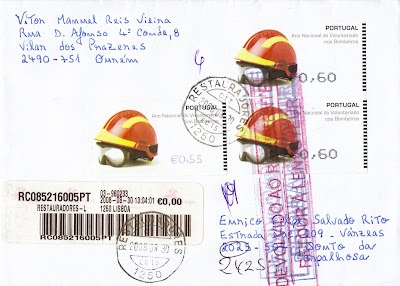 Vítor Manuel Reis Vieira
Rua D. Afonso 4º Conde, 8
Vilar dos Prazeres
2490-751 Ourém
PORTUGAL
Ano Nacional do Voluntariado
nos Bombeiros
€0,60
PORTUGAL
Ano Nacional do Voluntariado
nos Bombeiros
€0,60
PORTUGAL
Ano Nacional do Voluntariado
nos Bombeiros
€0,55
RESTAURADORES
1250
RC085216005PT
03-960233
2008-09-30 13:04:01
€0,00
RESTAURADORES-L
1250 LISBOA
RC085216005PT
RESTAURADORES
2008.09.30
1250
DEVOLVIDO AO
Salvado Rito
Estrada 109 - Várzeas
Souto da
Carpalhosa
2425